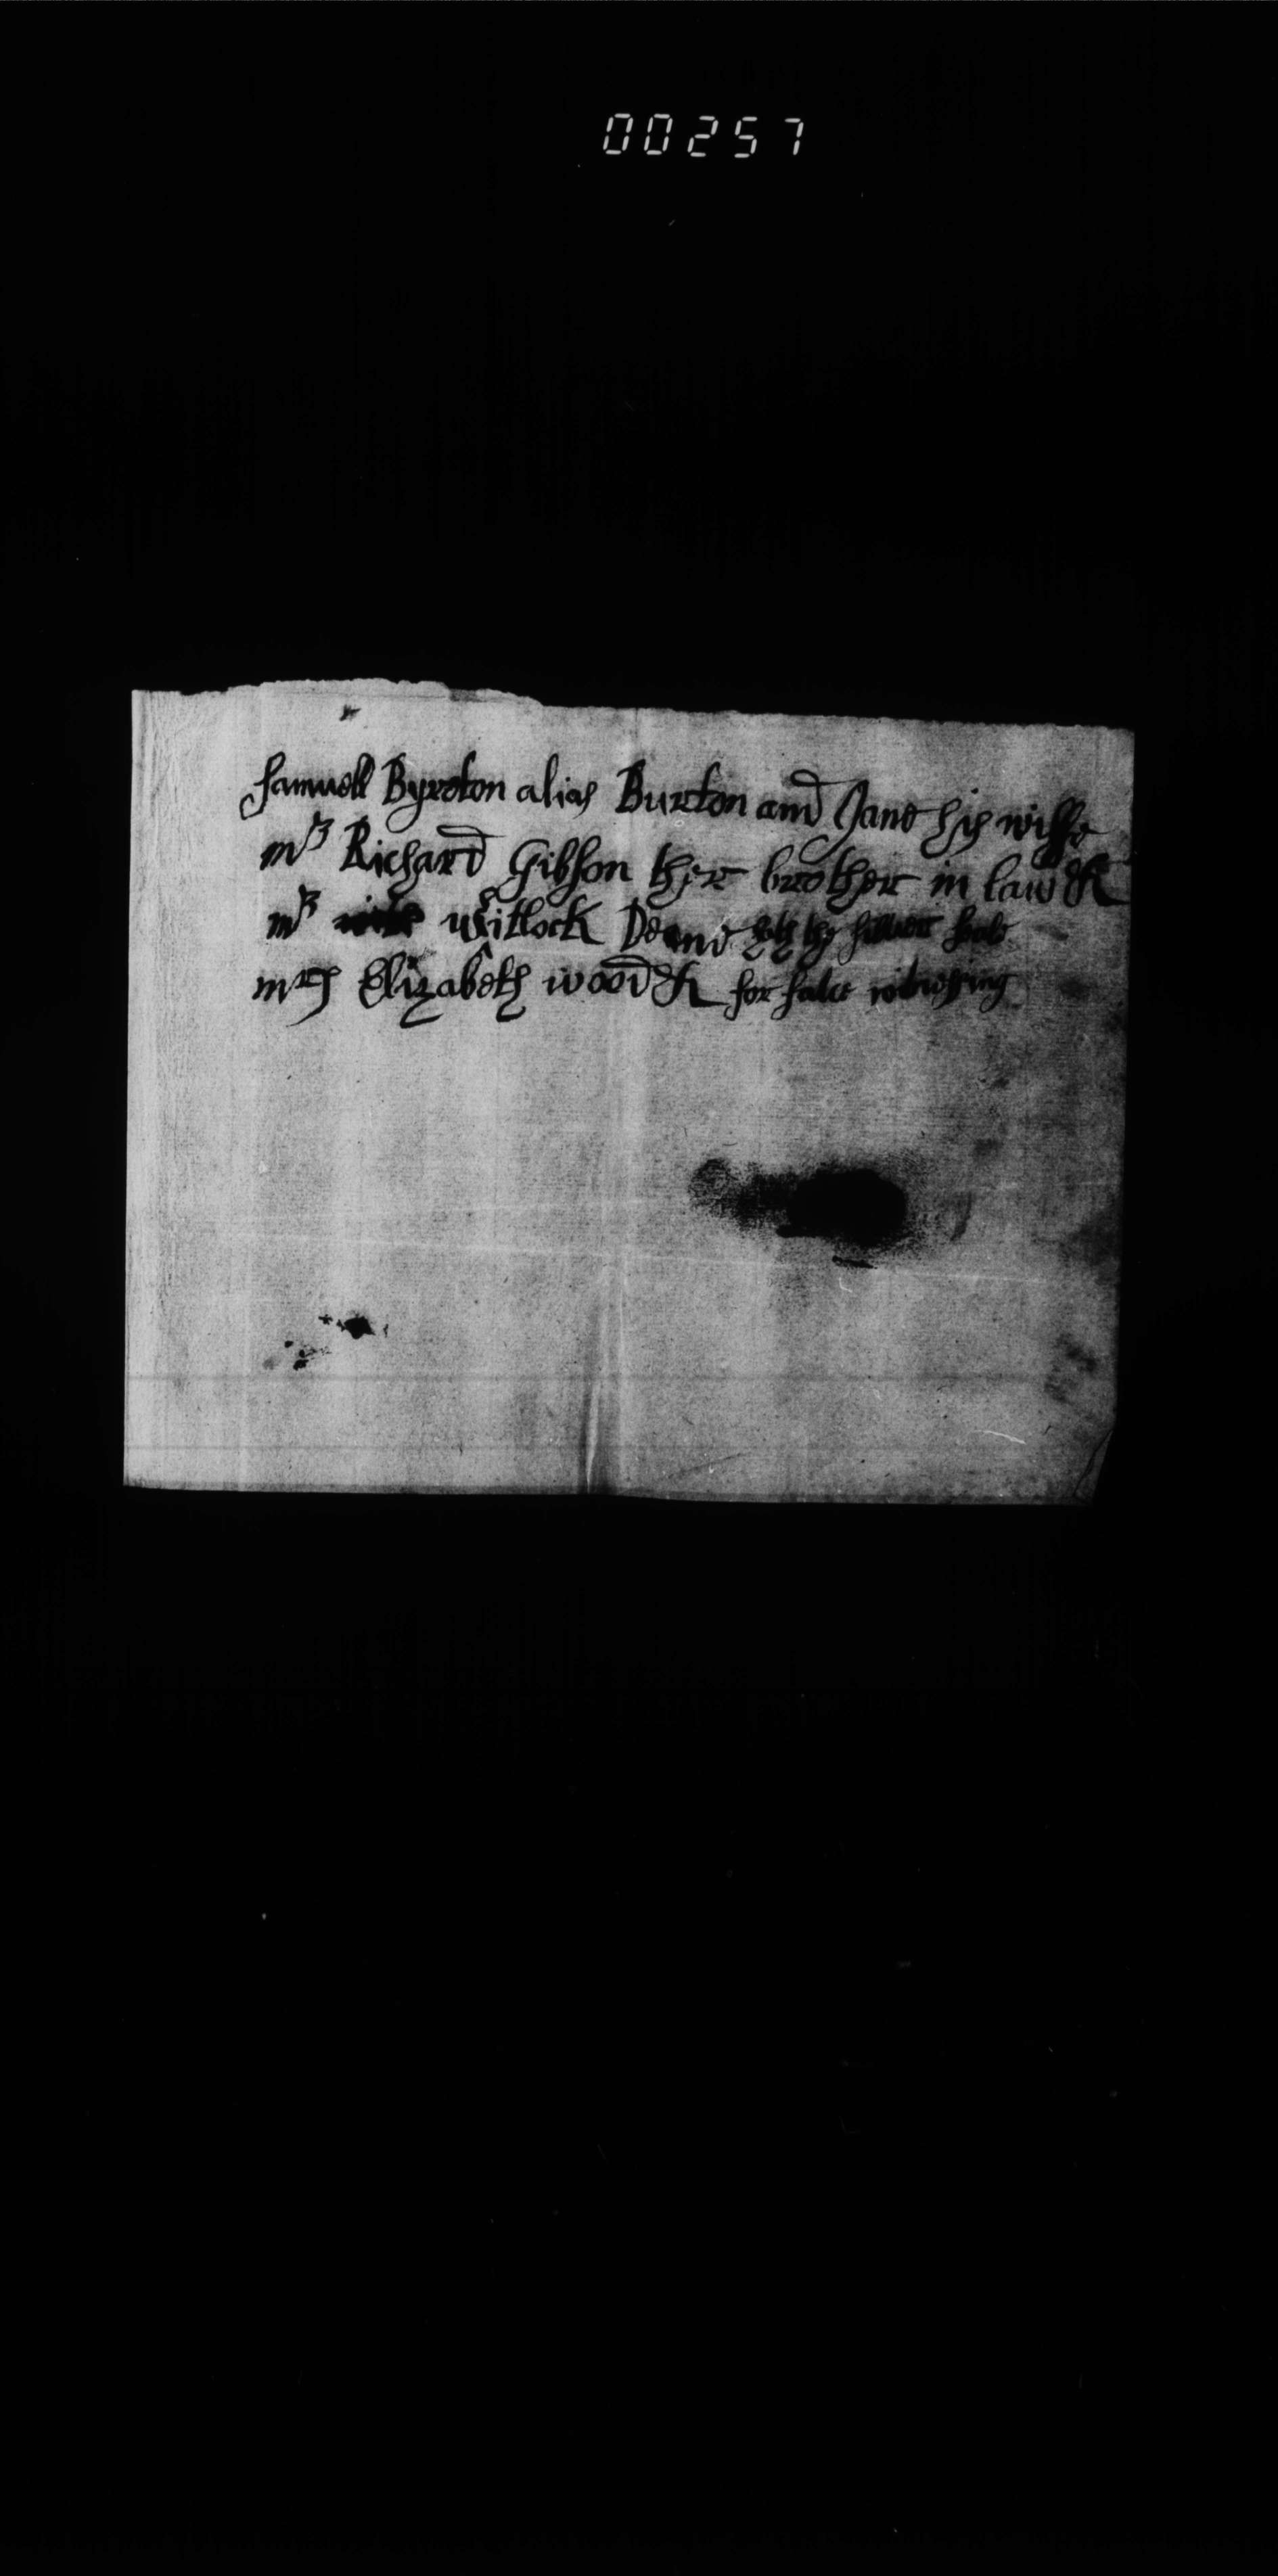 00257
Samuell Byreton alias Burton and Jane his wiffe
mr Richard Gibson ther brother in law &
mr whitlock Deane hath the silver seale
mrs Elizabeth wood & for false witnessing